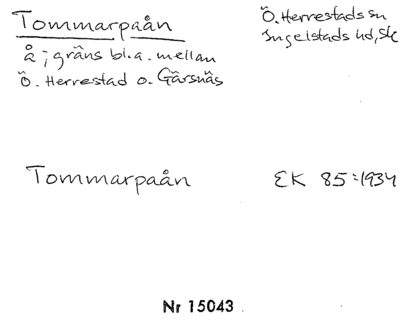 Tommarpaån
Ö. Herrestads sn
Ingelstads hd, Sk
å; gräns bl.a. mellan
Ö. Herrestad o. Gärsnäs
Tommarpaån
EK 85:1934
Nr 15043